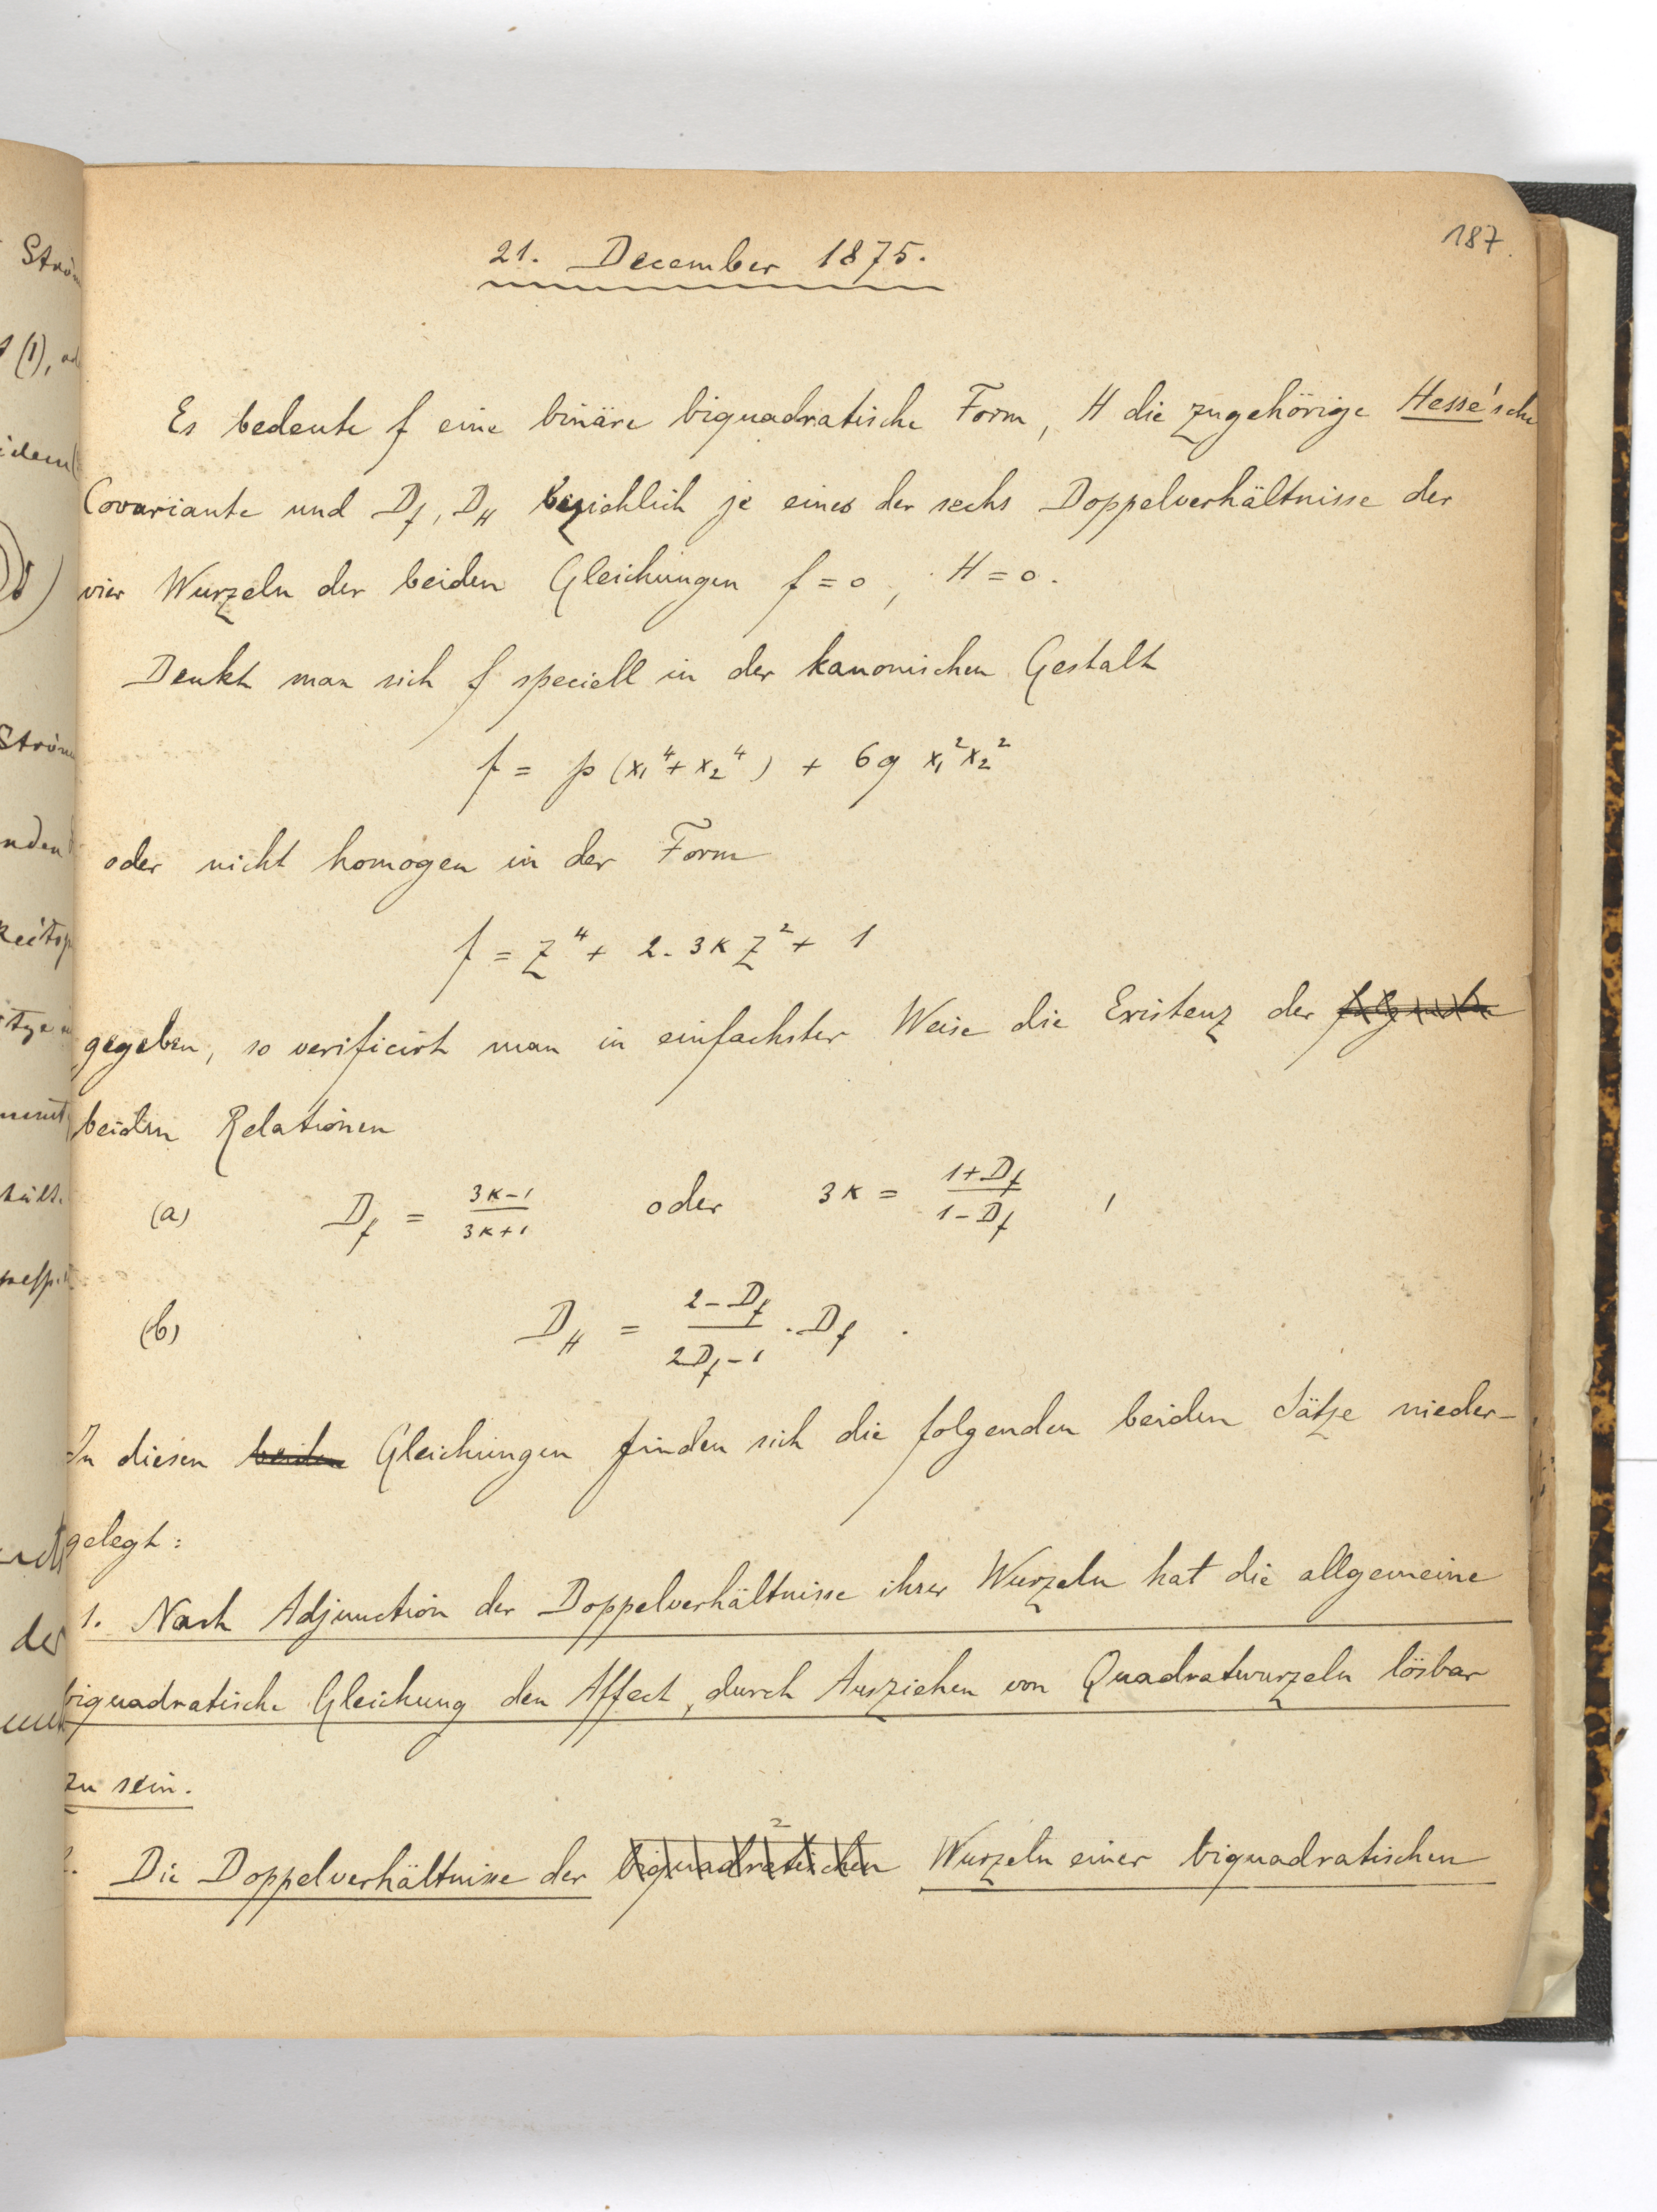 187
21. December 1875.
Es bedeute f eine binäre biquadratische Form, H die zugehörige Hesse'sche
Covariante und D_f, D_H bezichlich je eines der sechs Doppelverhältnisse der
vier Wurzeln der beiden Gleichungen f = 0, H = 0.
Denkt man sich f speciell in der kanonischen Gestalt
f = p (x₁⁴ + x₂⁴) + 6q x₁² x₂²
oder nicht homogen in der Form
f = z⁴ + 2. 3κ z² + 1
gegeben, so verificirt man in einfachster Weise die Existenz der
beiden Relationen
(a) D_f = (3κ-1)/(3κ+1) oder 3κ = (1+D_f)/(1-D_f) ,
(b) D_H = (2-D_f)/(2D_f-1) . D_f .
In diesen beiden Gleichungen finden sich die folgenden beiden Sätze nieder-
gelegt:
1. Nach Adjunction der Doppelverhältnisse ihrer Wurzeln hat die allgemeine
biquadratische Gleichung den Affect, durch Ausziehen von Quadratwurzeln lösbar
zu sein.
2. Die Doppelverhältnisse der biquadratischen Wurzeln einer biquadratischen
Strö
(1),
idem
Ström
nden
des